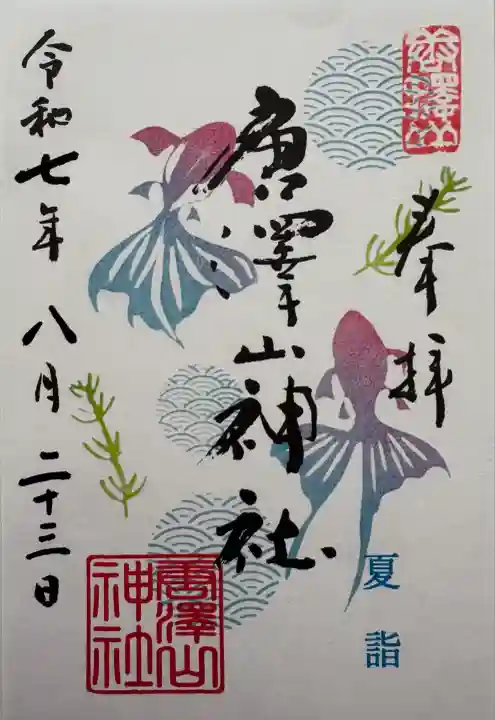 奉拝
夏詣
唐澤山神社
令和七年八月二十三日
唐澤山
唐澤山
神社